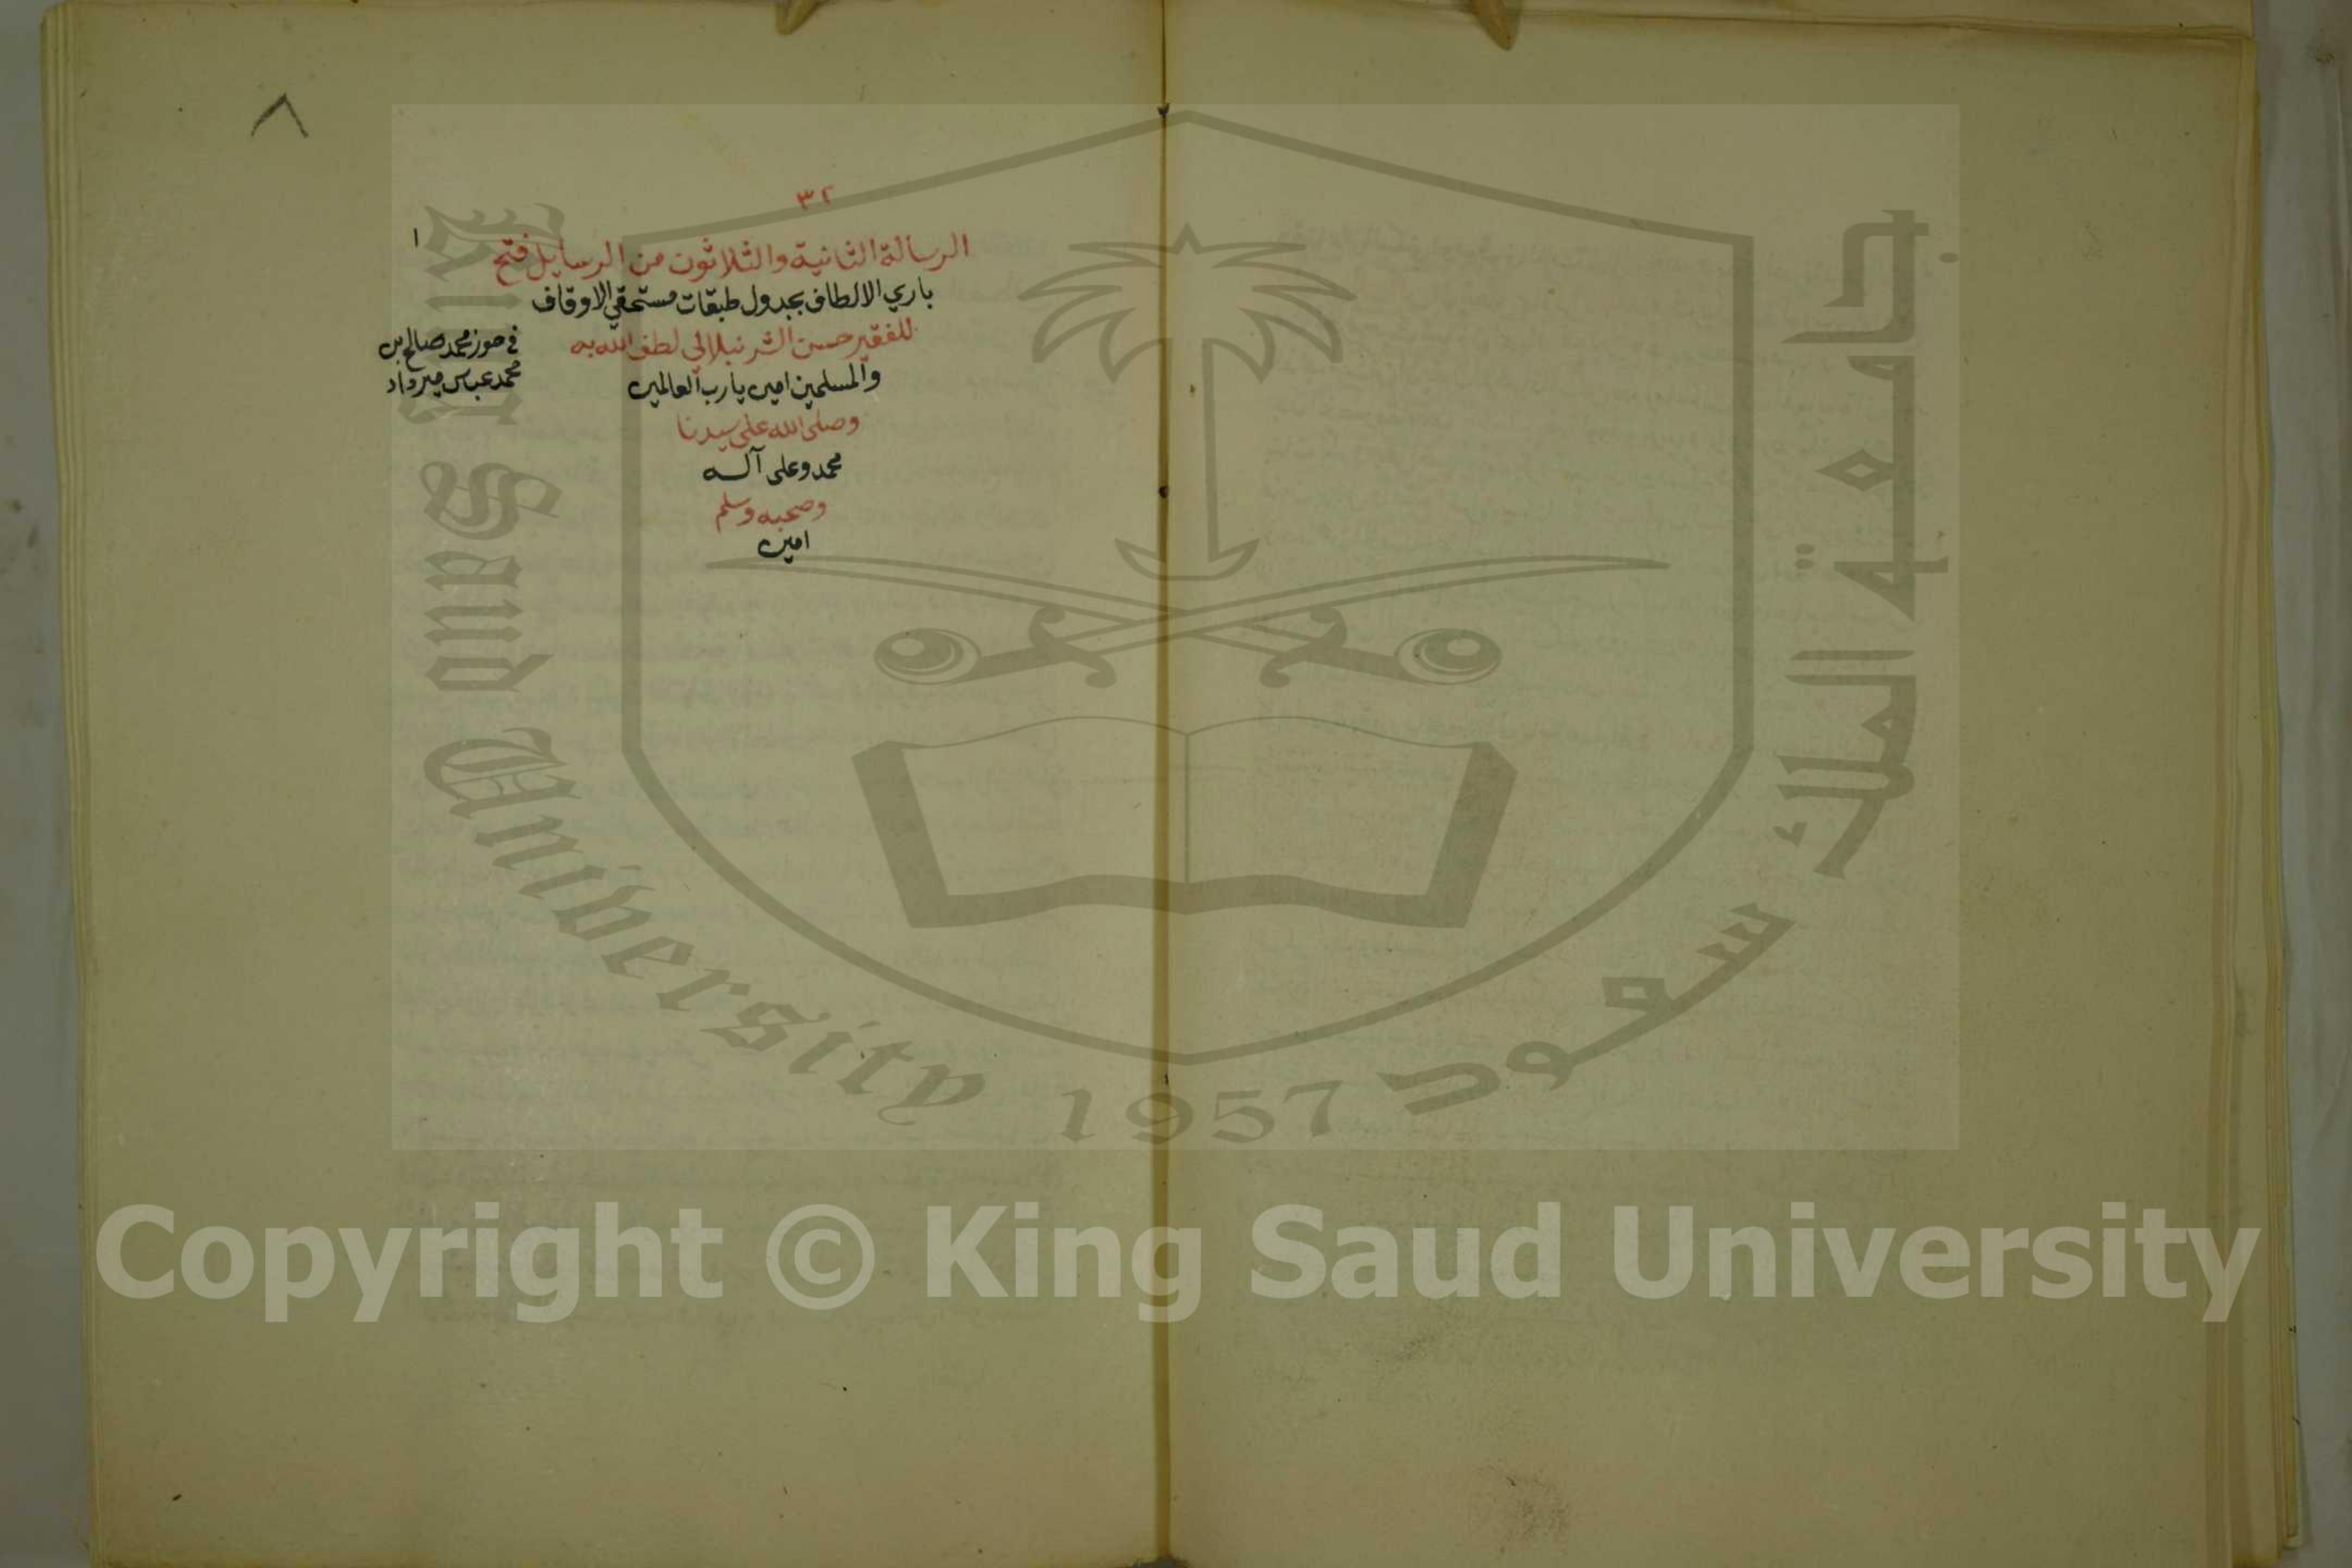 ٨
٣٢
١
الرسالة الثانية والثلاثون من الرسايل فتح
باري الالطاف بجدول طبقات مستحقي الاوقاف
للفقير حسن الشرنبلالي لطف الله به
والمسلمين امين يارب العالمين
وصلى الله على سيدنا
محمد وعلى آله
وصحبه وسلم
امين
في حوز محمد صالح بن
محمد عباس ميرداد
جامعة الملك سعود
King Saud University 1957
Copyright © King Saud University